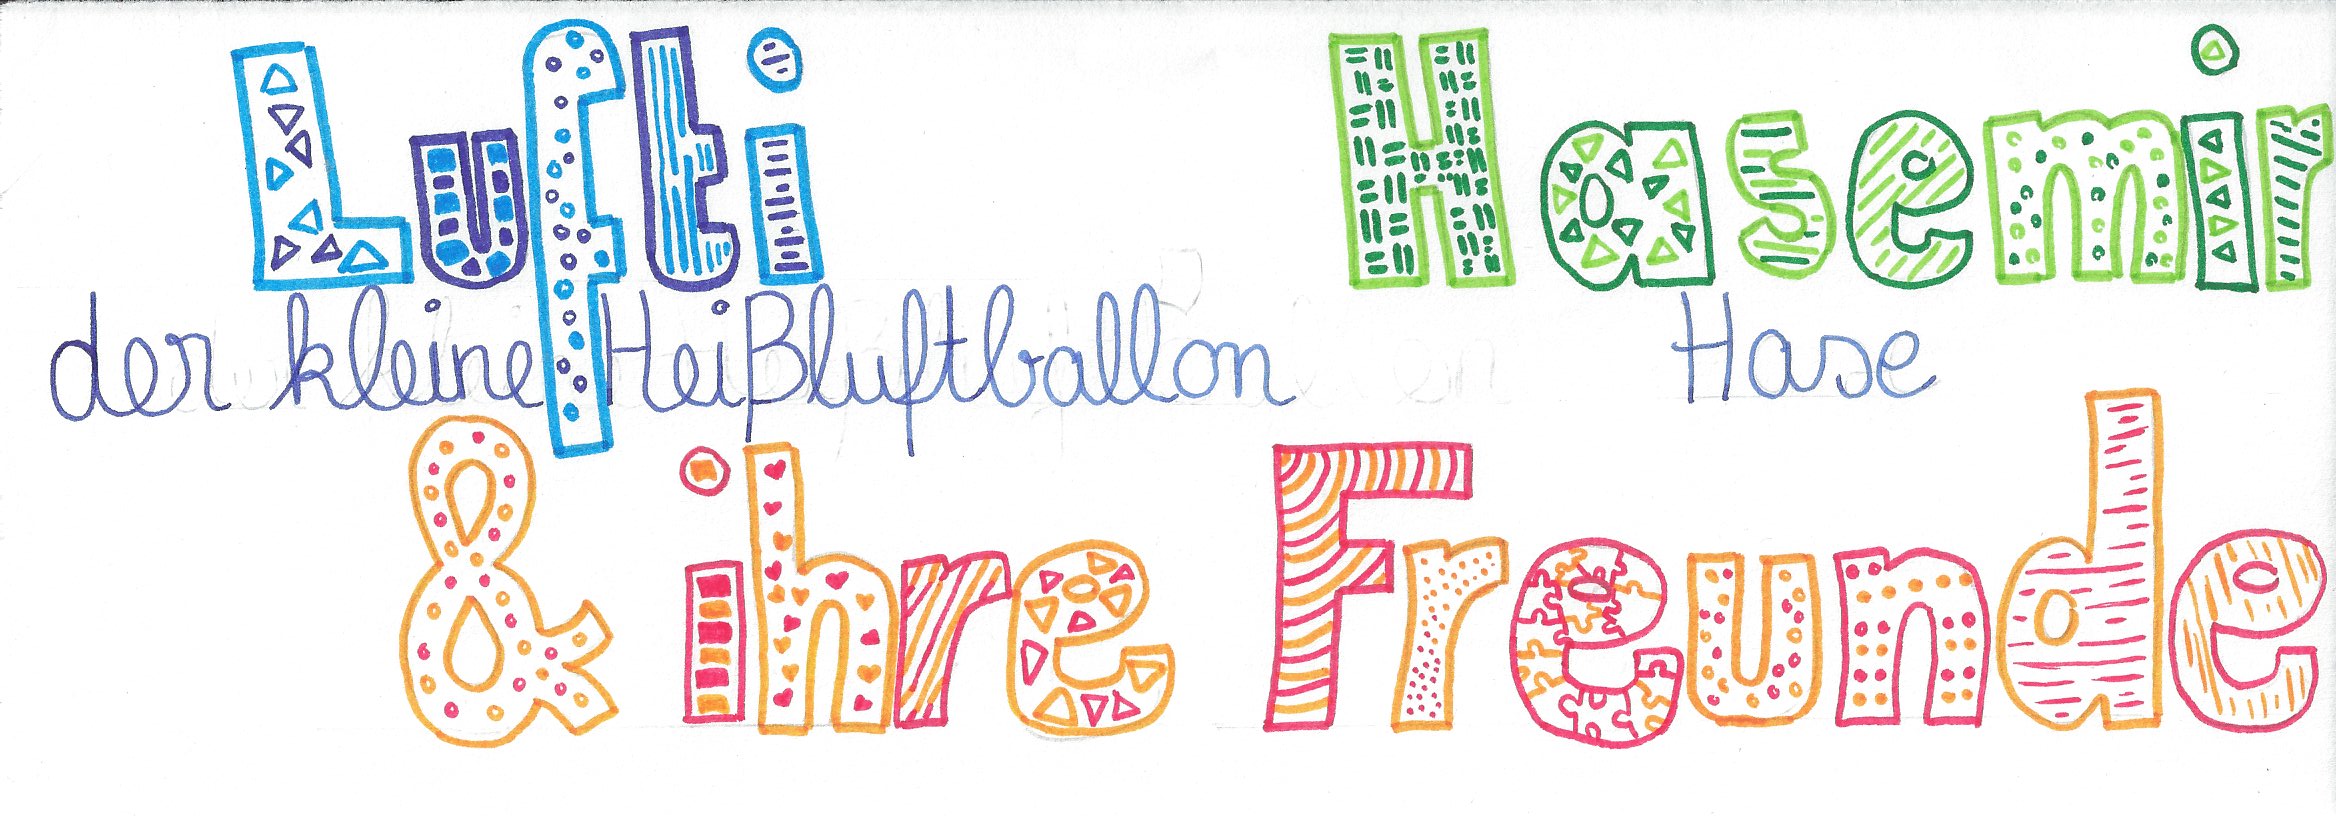 Lufti Hasemir
der kleine Heißluftballon Hase
& ihre Freunde